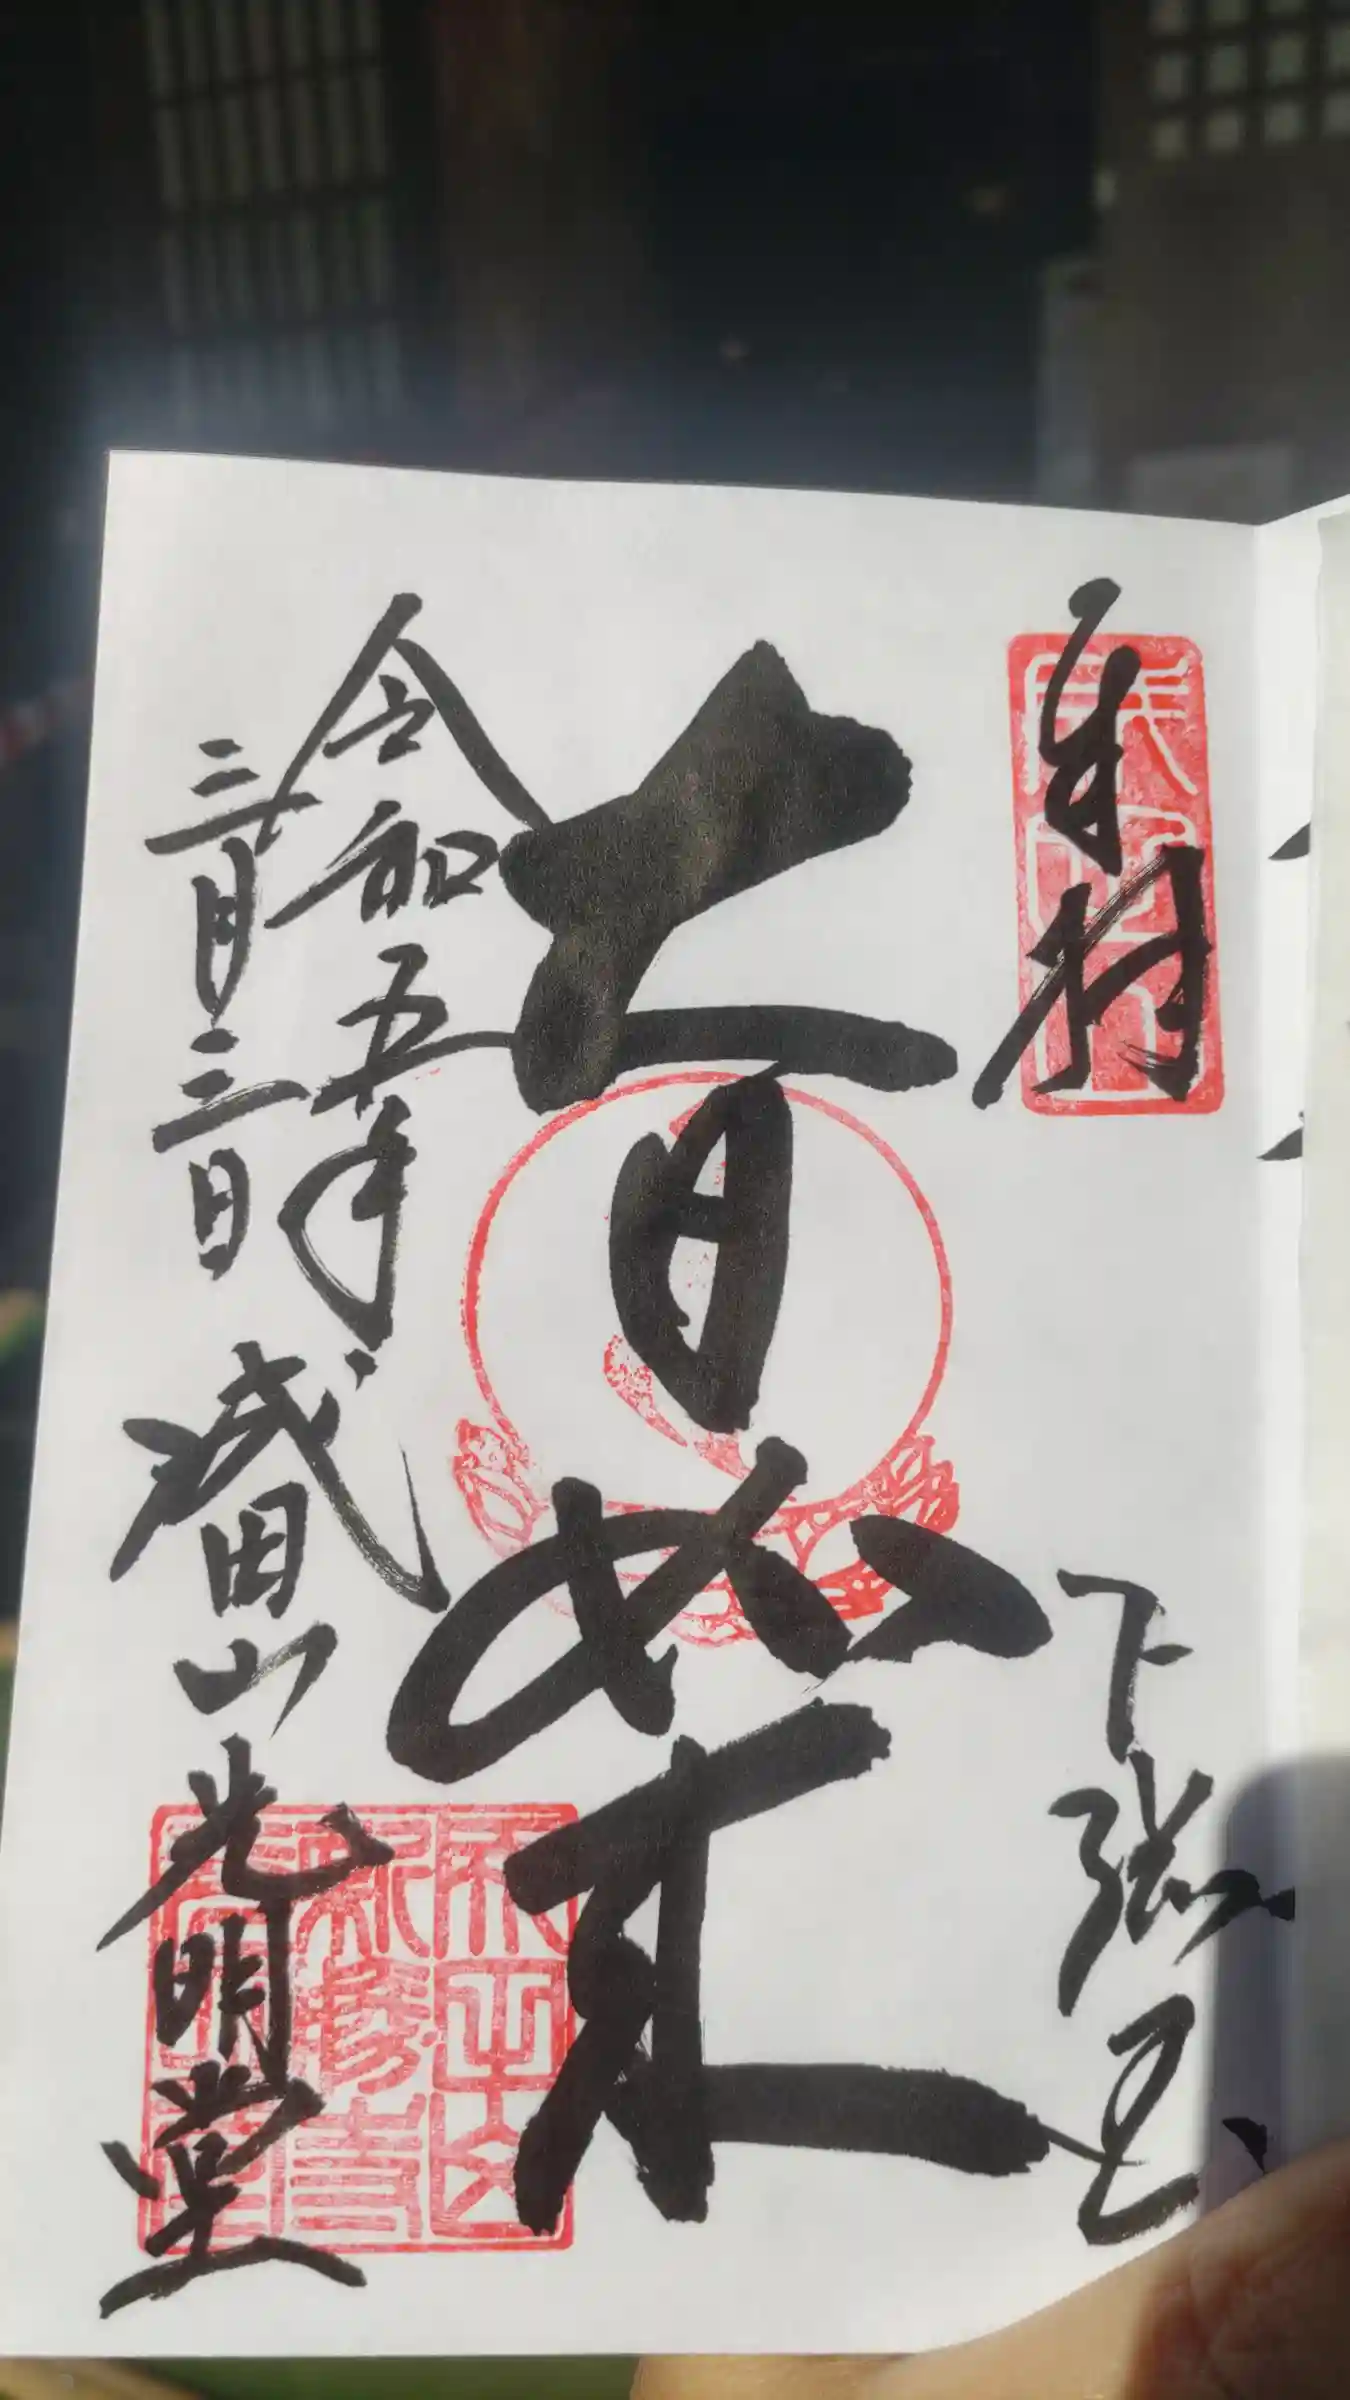 奉拝
下総国
大日如来
令和五年
三月三日
成田山光明堂